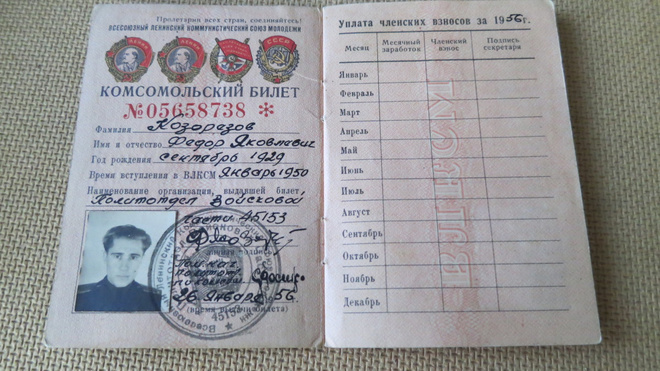 Пролетарии всех стран, соединяйтесь!
ВСЕСОЮЗНЫЙ ЛЕНИНСКИЙ КОММУНИСТИЧЕСКИЙ СОЮЗ МОЛОДЕЖИ
КОМСОМОЛЬСКИЙ БИЛЕТ
№05658738 *
Фамилия
Имя и отчество Федор Яковлевич
Год рождения сентябрь 1929
Время вступления в ВЛКСМ Январь 1950
Наименование организации, выдавшей билет
Политотдел Войсковой
части 45153
26 Января 56г.
(время выдачи билета)
45153
Уплата членских взносов за 1956г.
Месяц Месячный заработок Членский взнос Подпись секретаря
Январь
Февраль
Март
Апрель
Май
Июнь
Июль
Август
Сентябрь
Октябрь
Ноябрь
Декабрь
ВЛКСМ